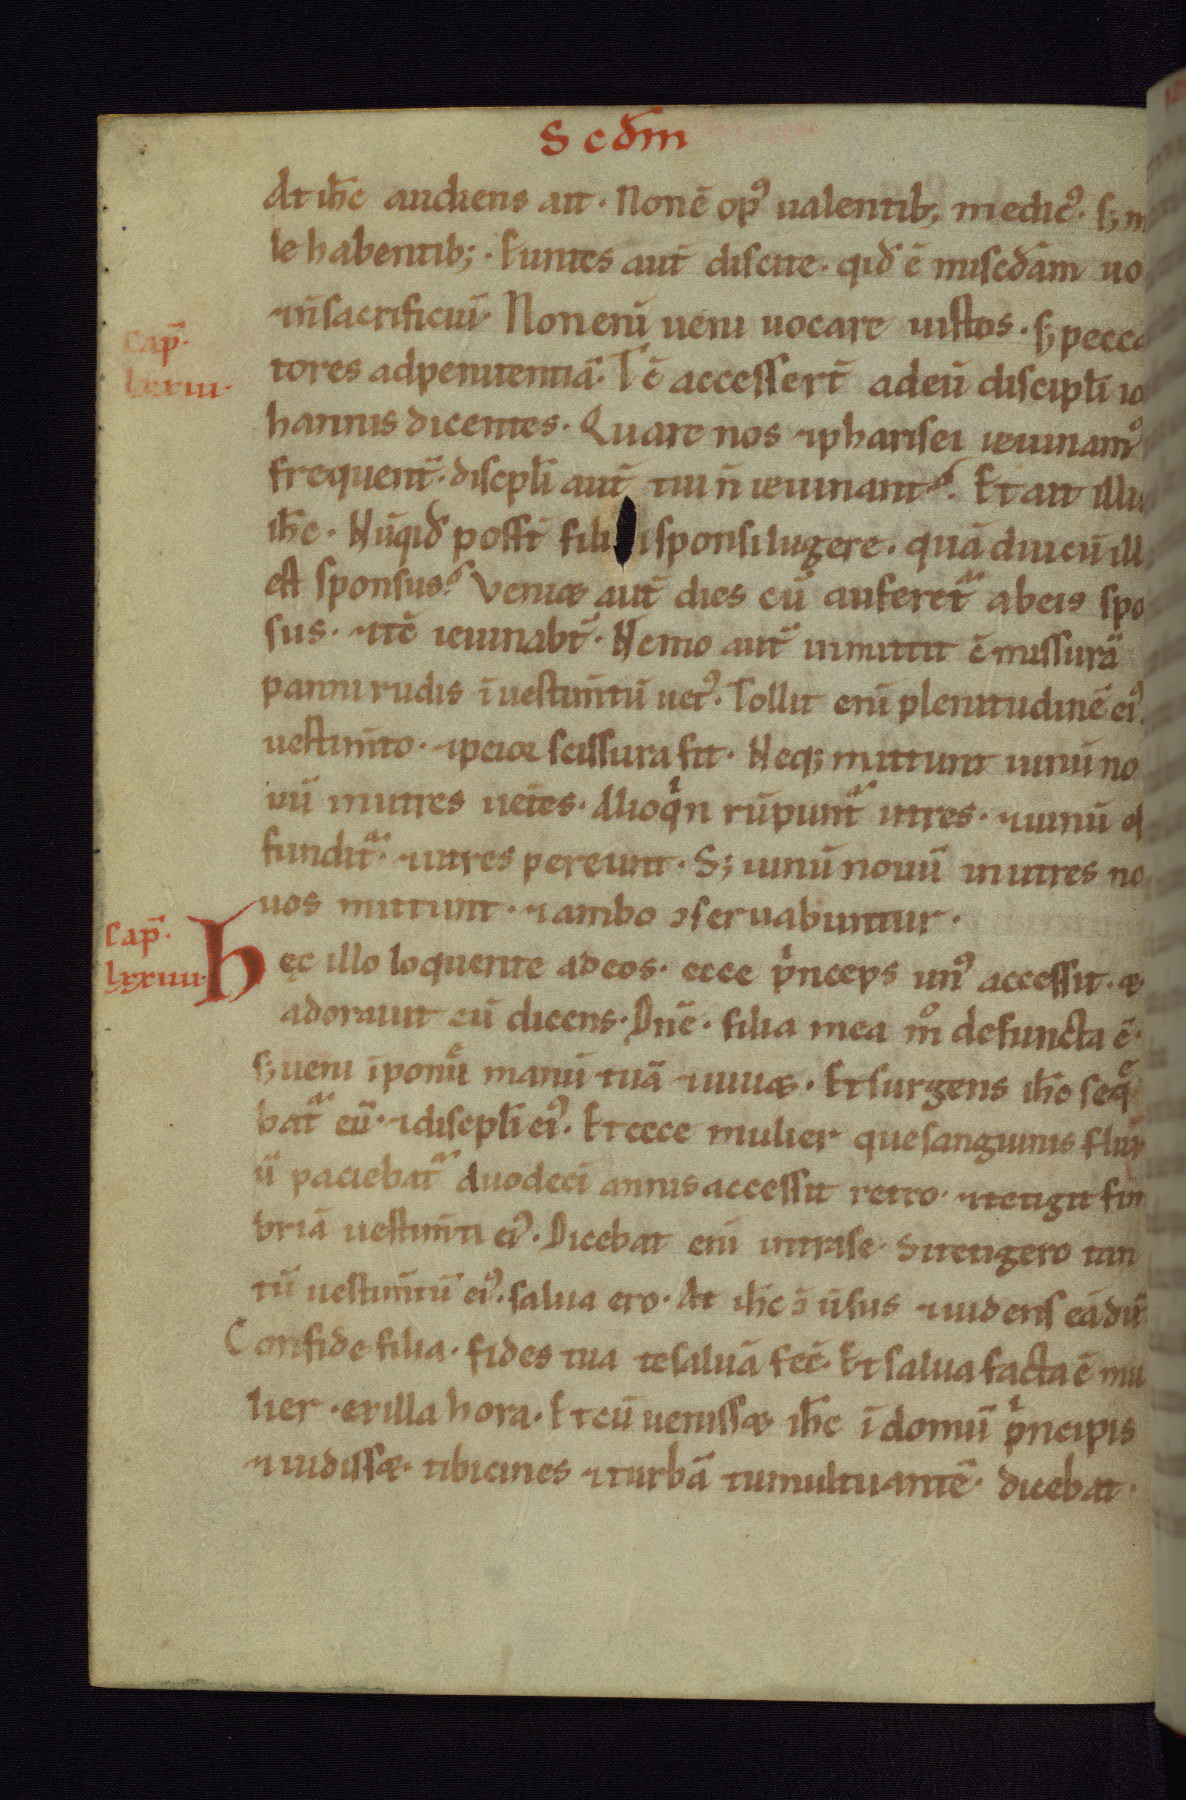 Scđm
At ih̄c audiens ait · Non ē opꝰ ualentib; medicꝰ · s; m
le habentib; · Euntes aut̄ discite · qid̄ ē misc̄dam uo
⁊ n̄ sacrificiū · Non eni ueni uocare iustos · s; pecca
Cap̄ ·
lxxiii ·
tores ad penitentiā · Tc̄ accessert̄ ad eū discipl̄i io
hannis dicentes · Quare nos ⁊ pharisei ieiunamꝰ
frequent̄ · discpl̄i aut̄ tui n̄ ieiunant? Et ait illi
ih̄c · Nūqid̄ posst̄ filii sponsi lugere · quādiu cū ill
est sponsus? Veniæ aut̄ dies cū auferet̄ ab eis spo
sus · ⁊ tc̄ ieiunabt̄ · Nemo aut̄ inmittit c̄missurā
panni rudis ī uestim̄tū uetꝰ · Tollit eni plenitudinē eiꝰ
uestim̄to · ⁊ peior scissura fit · Neq; mittunt uinū no
uū in utres uet̄es · Alioqin rūpunt̄ utres · ⁊ uinū ef
fundit̄ · ⁊ utres pereunt · S; uinū nouū in utres no
uos mittunt · ⁊ ambo ɔseruabuntur ·
Cap̄ ·
lxxiiii ·
Hęc illo loquente ad eos · ecce pͥnceps unꝰ accessit · æ
adorauit eū dicens · Dn̄e · filia mea mͦ defuncta ē ·
s; ueni īponē manū tuā ⁊ uiuæ · Et surgens ih̄c seq
bat̄ eū · ⁊ discpl̄i eiꝰ · Et ecce mulier que sanguinis flux
ū paciebat̄ duodeci annis accessit retro · ⁊ tetigit fim
briā uestim̄ti eiꝰ · Dicebat eni intra se · Si tetigero tan
tū uestim̄tū eiꝰ · salua ero · At ih̄c ɔ ūsus ⁊ uidens eā dix̄
Confide filia · fides tua te saluā fec̄ · Et salua facta ē mu
lier · ex illa hora · Et cū uenissæ ih̄c ī domū pͥncipis
⁊ uidissæ · tibicines ⁊ turbā tumultuantē · dicebat ·